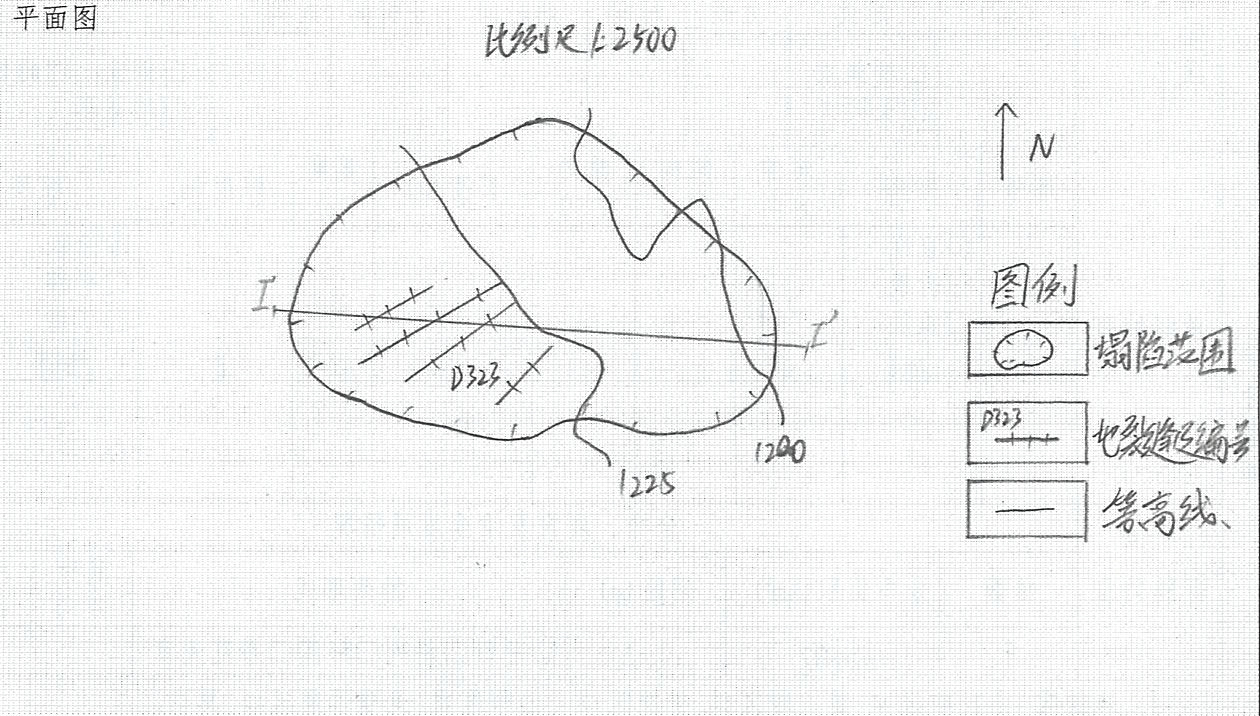 平面图
比例尺 1:2500
N
I
I'
D323
1200
1225
图例
塌陷范围
D323
地裂缝及编号
等高线